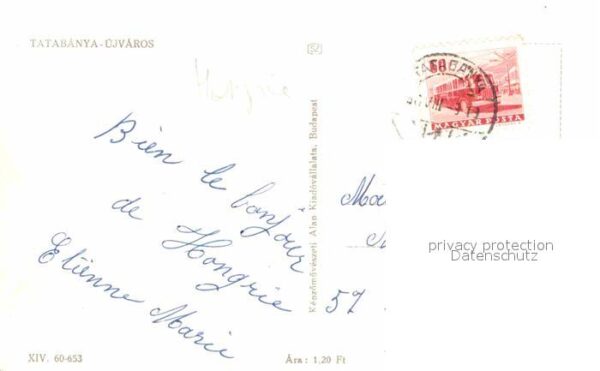 TATABÁNYA-ÚJVÁROS
Hongrie
Bien le bonjour
de Hongrie
Etienne Marie
XIV. 60-653
Ára: 1,20 Ft
Képzőművészeti Alap Kiadóvállalata, Budapest
MAGYAR POSTA
57
privacy protection
Datenschutz